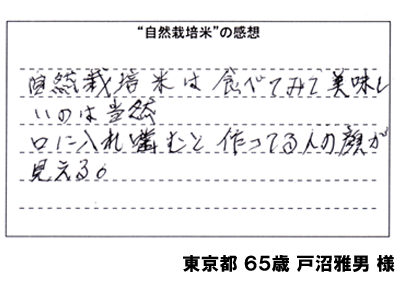 “自然栽培米”の感想
自然栽培米は食べてみて美味し
いのは当然
口に入れ噛むと作ってる人の顔が
見える。
東京都 65歳 戸沼雅男 様